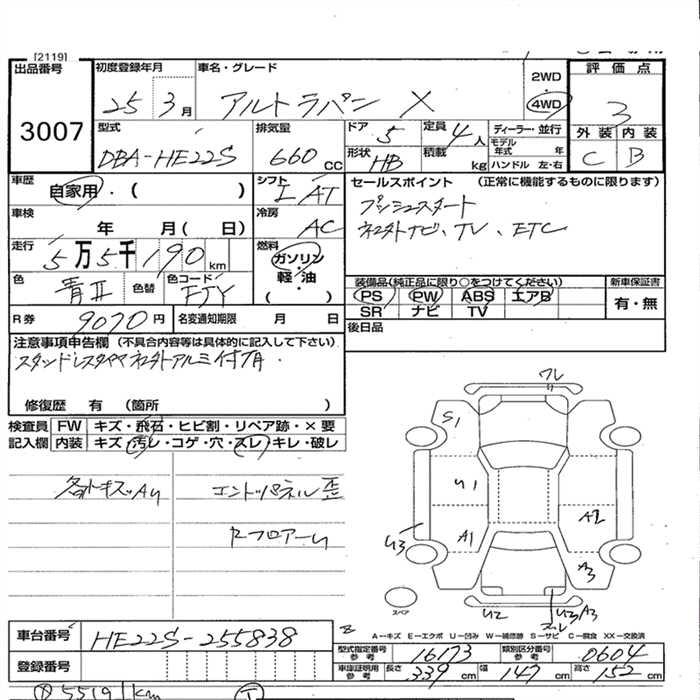 [2119]
出品番号 3007
初度登録年月 25 3月
車名・グレード アルトラパン X
2WD 4WD
評価点 3
外装 内装
C B
型式 DBA-HE22S
排気量 660 CC
ドア 5
定員 4人
ディーラー・並行
形状 HB
積載 kg
モデル年式 年
ハンドル 左・右
車歴 自家用・( )
シフト AT
セールスポイント (正常に機能するものに限ります)
プッシュスタート
車検 年 月( 日)
冷房 AC
社外ナビ、TV、ETC
走行 5万5千190km
燃料 ガソリン・軽油 ( )
色 青II 色替 色コード
装備品(純正品に限り○をつけてください)
新車保証書
PS PW ABS エアB
有・無
SR ナビ TV
R券 9070円
名変通知期限 月 日
後日品
注意事項申告欄 (不具合内容等は具体的に記入して下さい)
スタッドレスタイヤ社外アルミ付有.
修復歴 有 (箇所 )
検査員 FW キズ・飛石・ヒビ割・リペア跡・×要
記入欄 内装 キズ・汚レ・コゲ・穴・スレ・キレ・破レ
各トキズAu
エンドパネル歪
RフロアーU
ワレ
S1
U1
U3
A1
A2
A3
スペア
U2
U3 A3
A-キズ E-エクボ U-凹み W-補修跡 S-サビ C-腐食 XX-交換済
車台番号 HE22S-255838
登録番号
型式指定番号 参考 16173
類別区分番号 参考 0604
車庫証明用 参考 長さ 339 cm 幅 147 cm 高さ 152 cm
5519 km